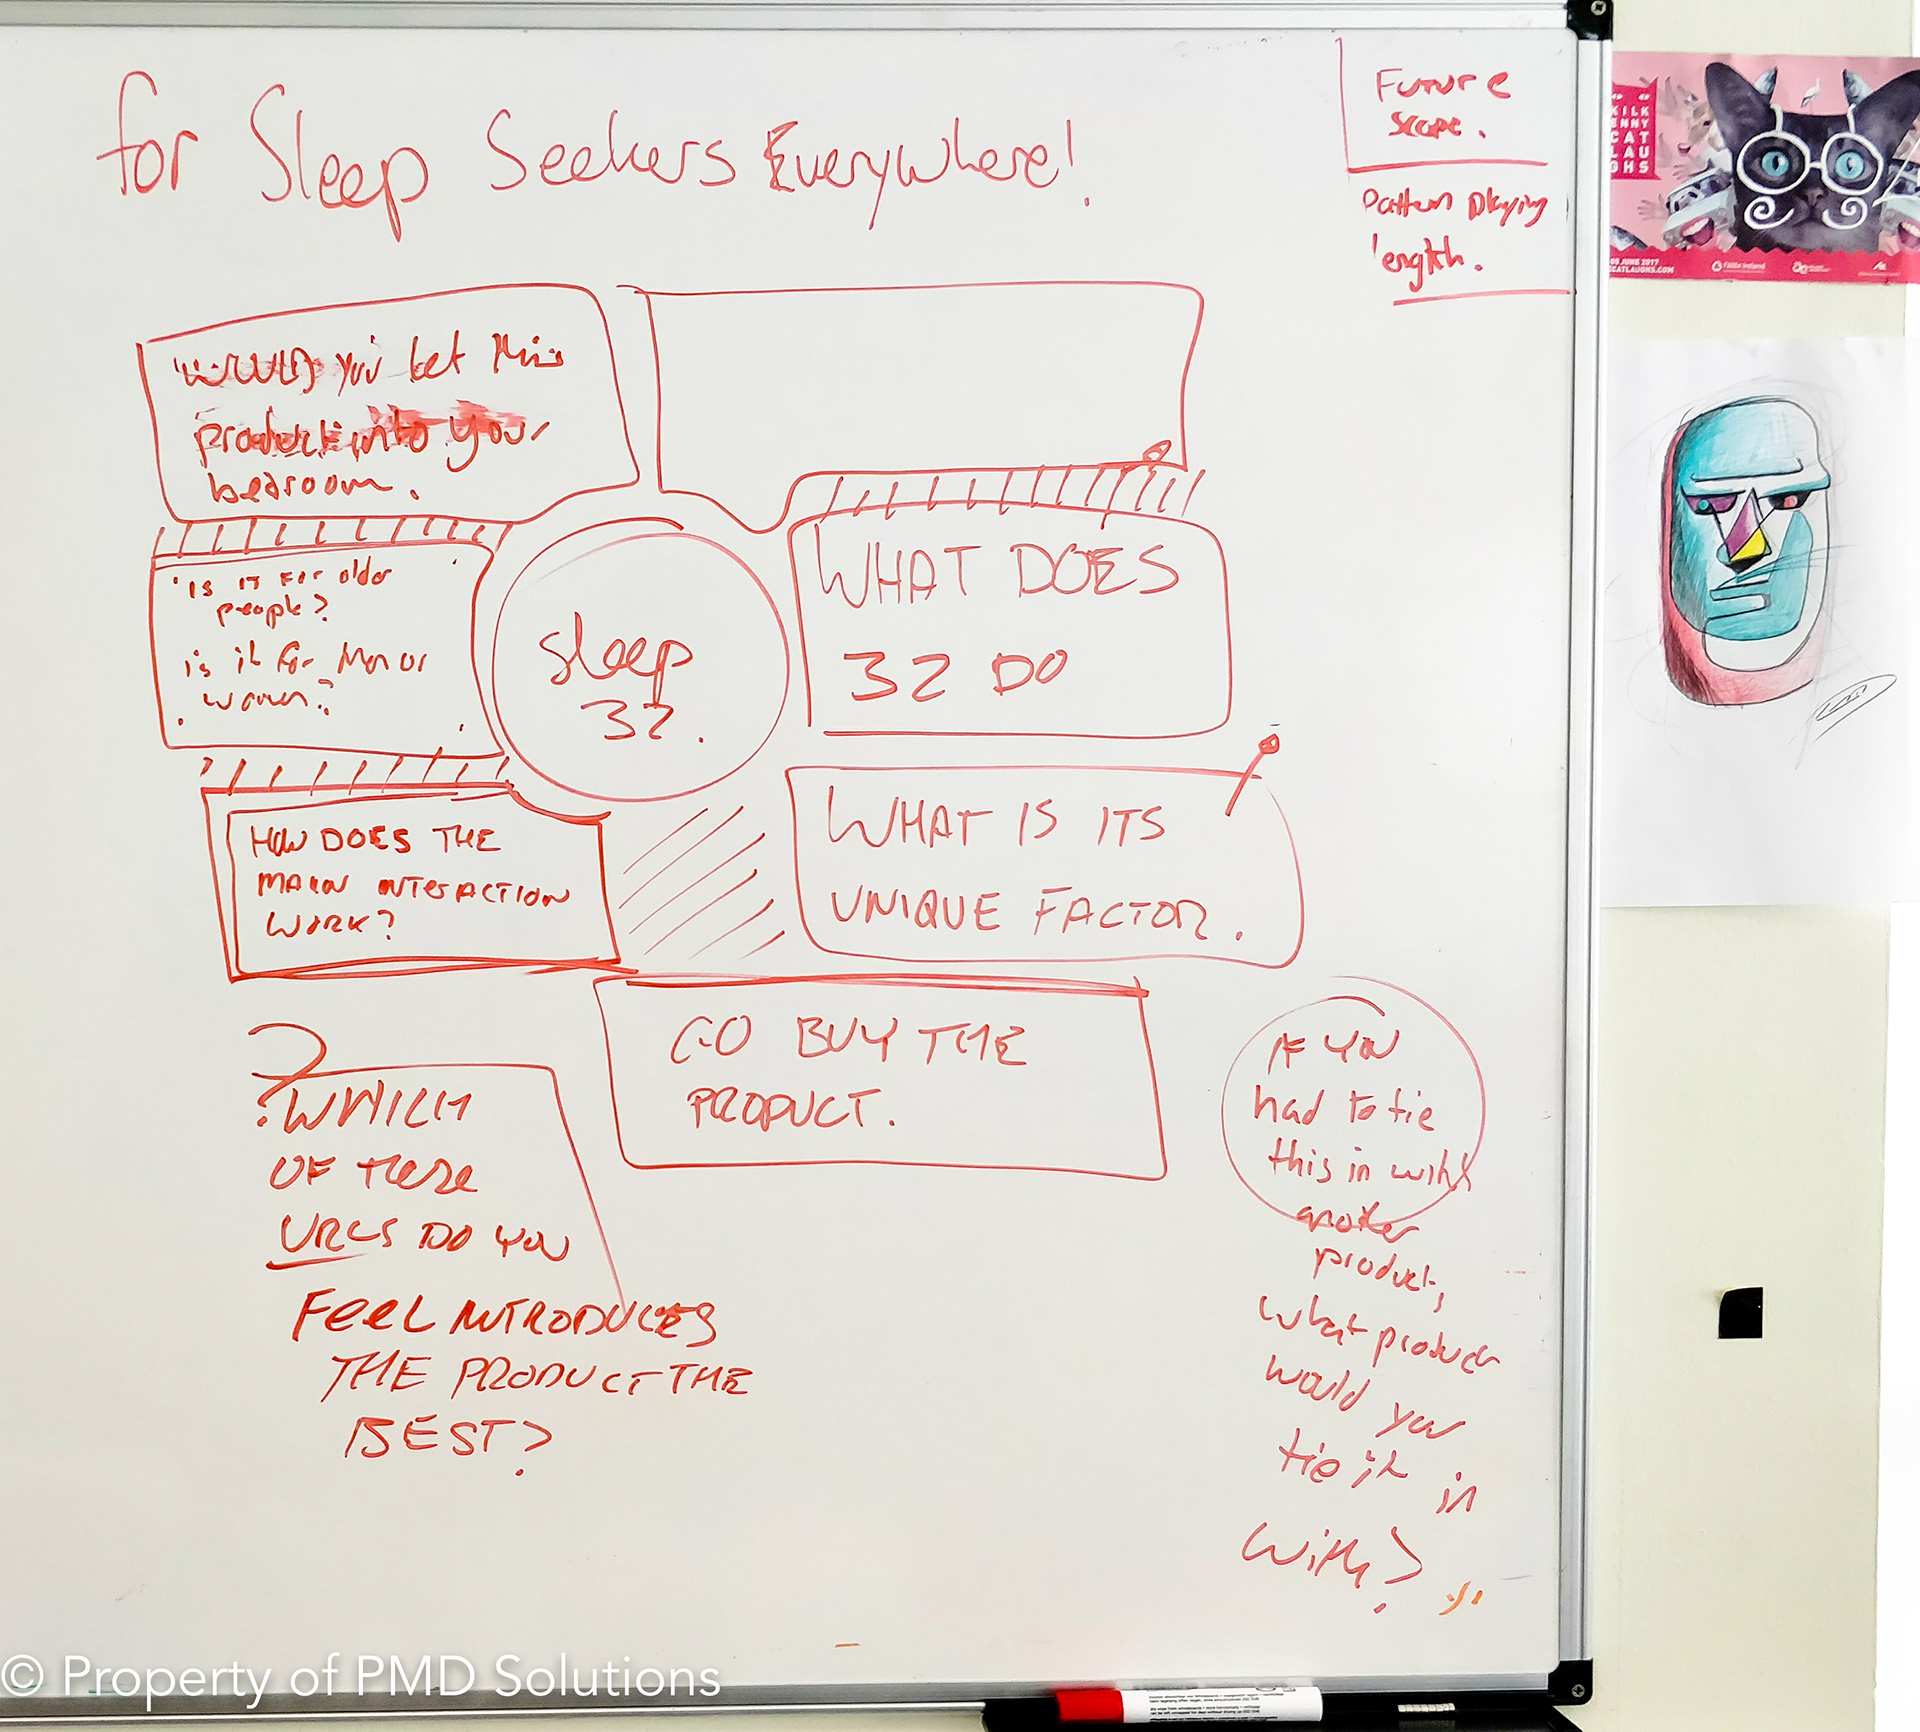 for Sleep Seekers Everywhere!
Future
Scope.
Pattern Playing
length.
WOULD you let this
product into your
bedroom.
IS IT FOR older
people?
is it for Men or
women?
sleep
32.
WHAT DOES
32 DO
HOW DOES THE
MAIN INTERACTION
WORK?
WHAT IS ITS
UNIQUE FACTOR.
GO BUY THE
PRODUCT.
?WHICH
OF THESE
URLS DO YOU
FEEL INTRODUCES
THE PRODUCT THE
BEST?
IF YOU
had to tie
this in with
another
product,
what product
would you
tie it in
with?
KILK
ENNY
CAT
LAU
GHS
05 JUNE 2017
CATLAUGHS.COM
Fáilte Ireland
© Property of PMD Solutions